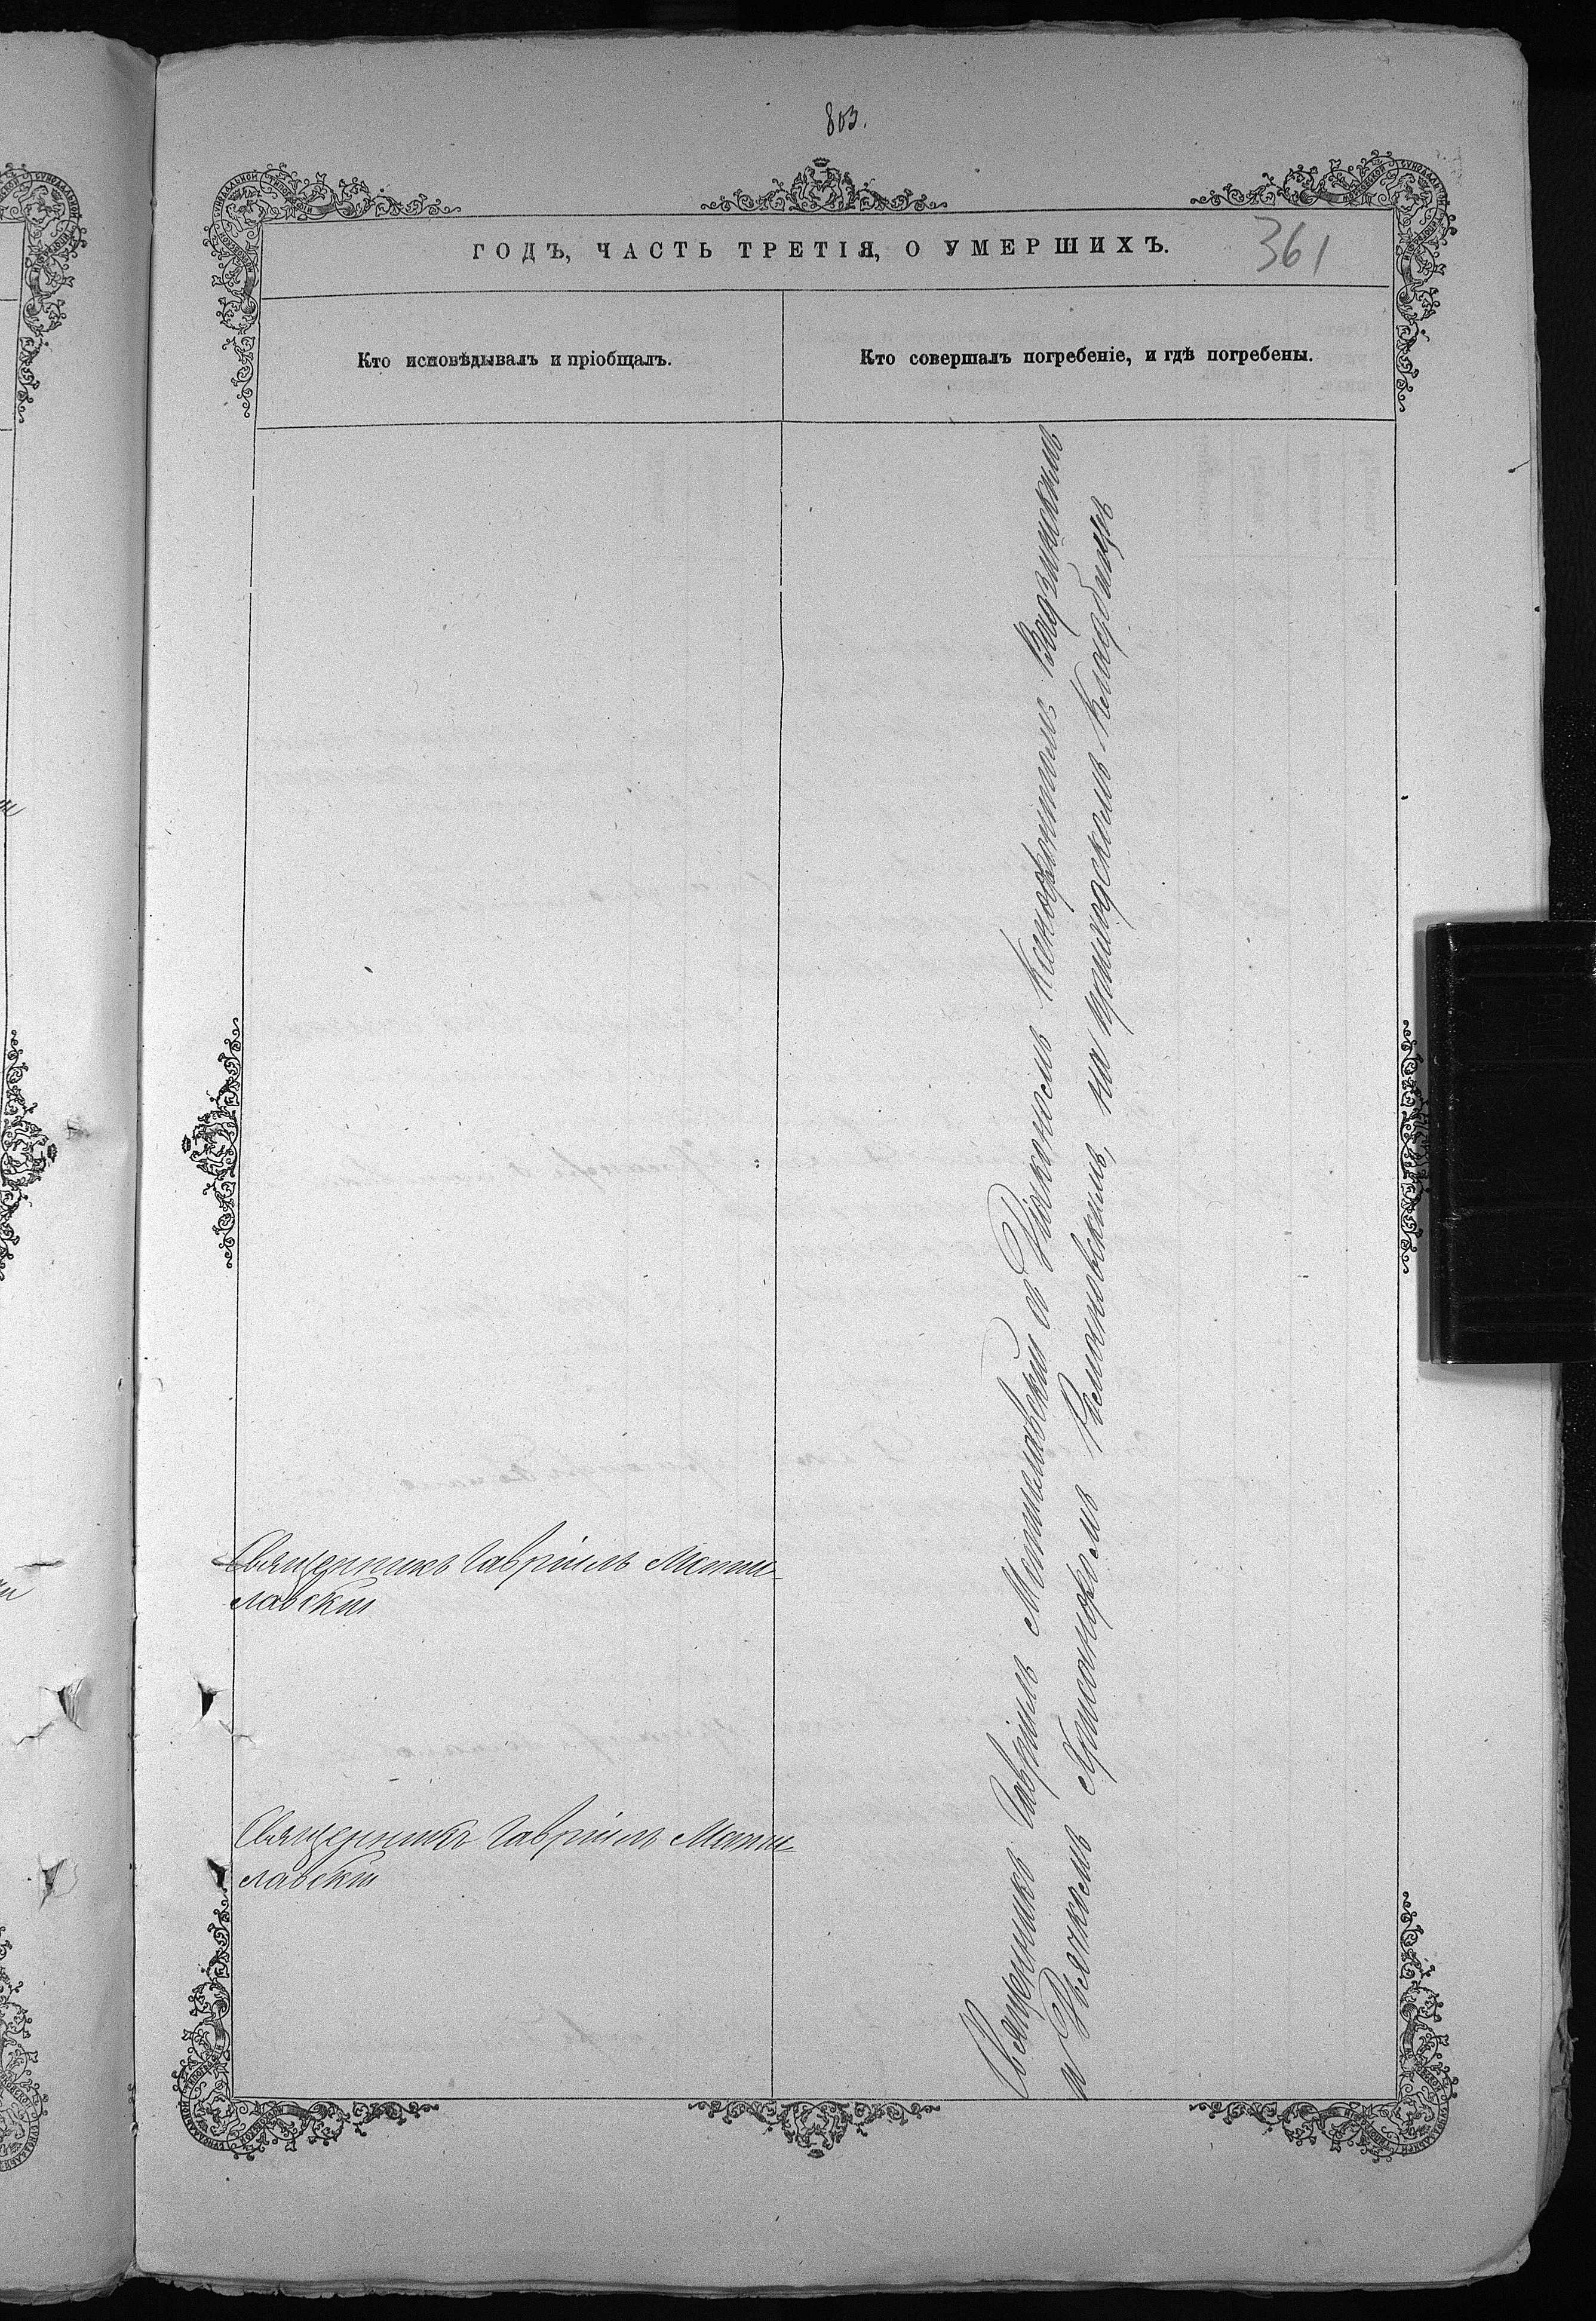 803.
ГОДЪ, ЧАСТЬ ТРЕТІЯ, О УМЕРШИХЪ.
361
Кто исповѣдывалъ и пріобщалъ.
Кто совершалъ погребеніе, и гдѣ погребены.
Священникъ Гавріилъ Мстис-
лавскій
Священникъ Гавріилъ Мстис-
лавскій
Священникъ Гавріилъ Мстиславскій съ Діакономъ Ксенофонтомъ
и Дьячкомъ на приходскомъ кладбищѣ